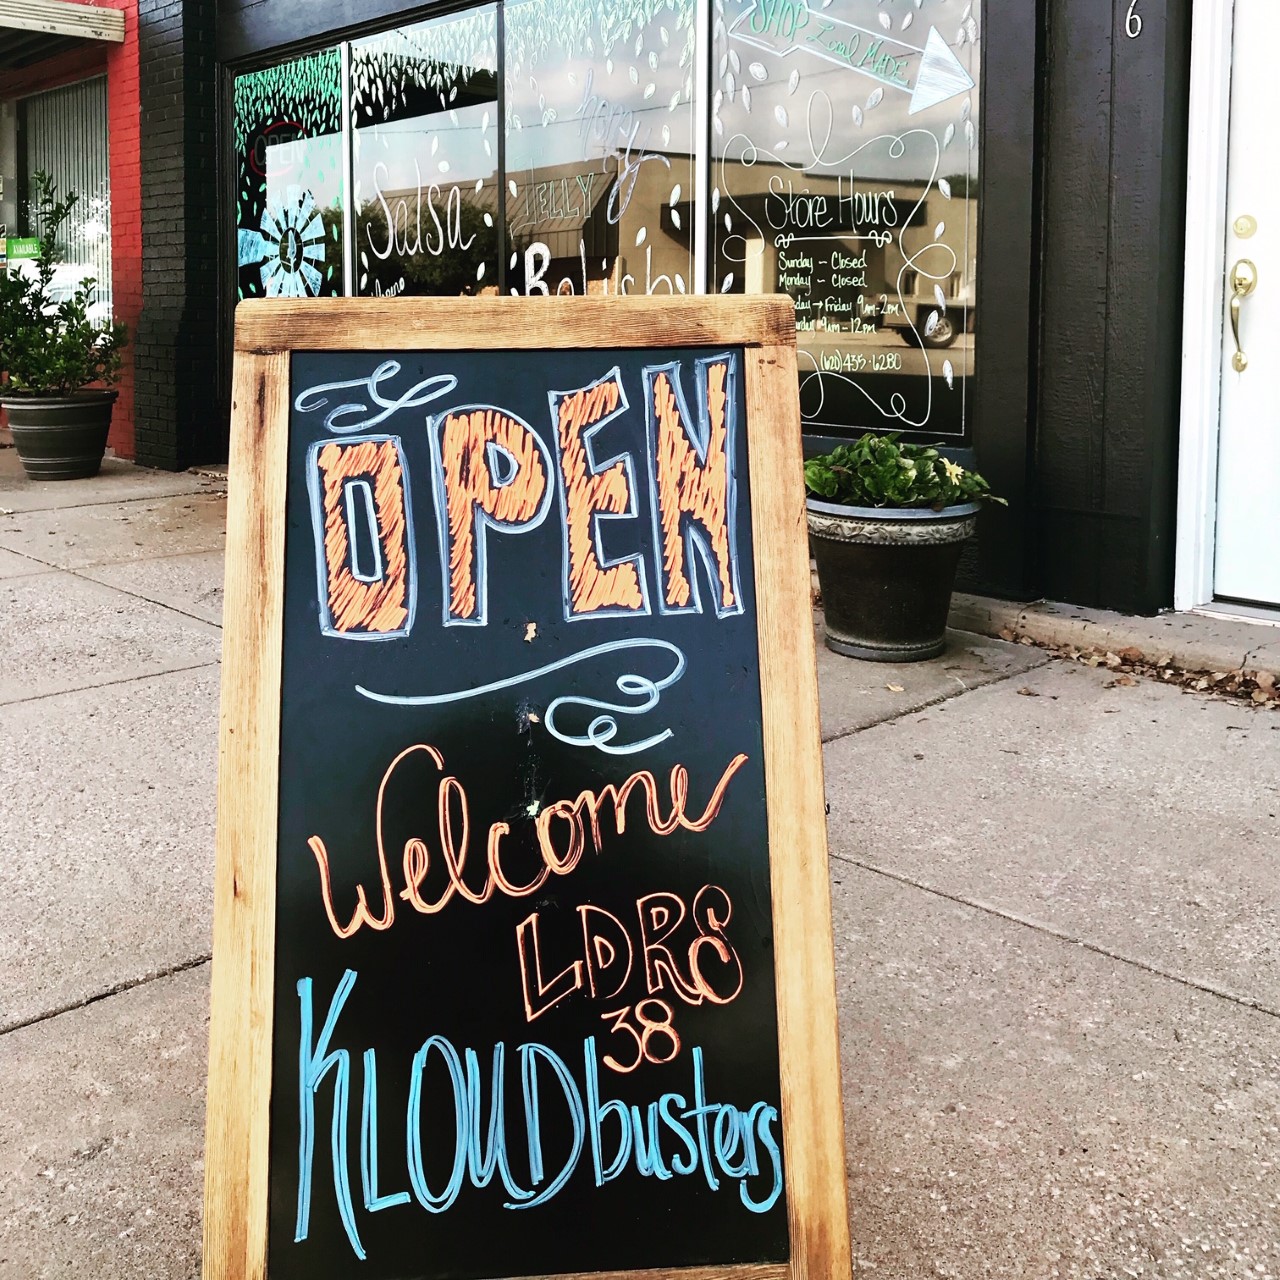 6
SHOP Local MADE
OPEN
AVAILABLE
Salsa
JELLY
honey
Relish
Store Hours
Sunday - Closed
Monday - Closed
Friday 9am-2pm
9am-12pm
(620)435-6280
OPEN
Welcome
LDRS
38
KLOUDbusters